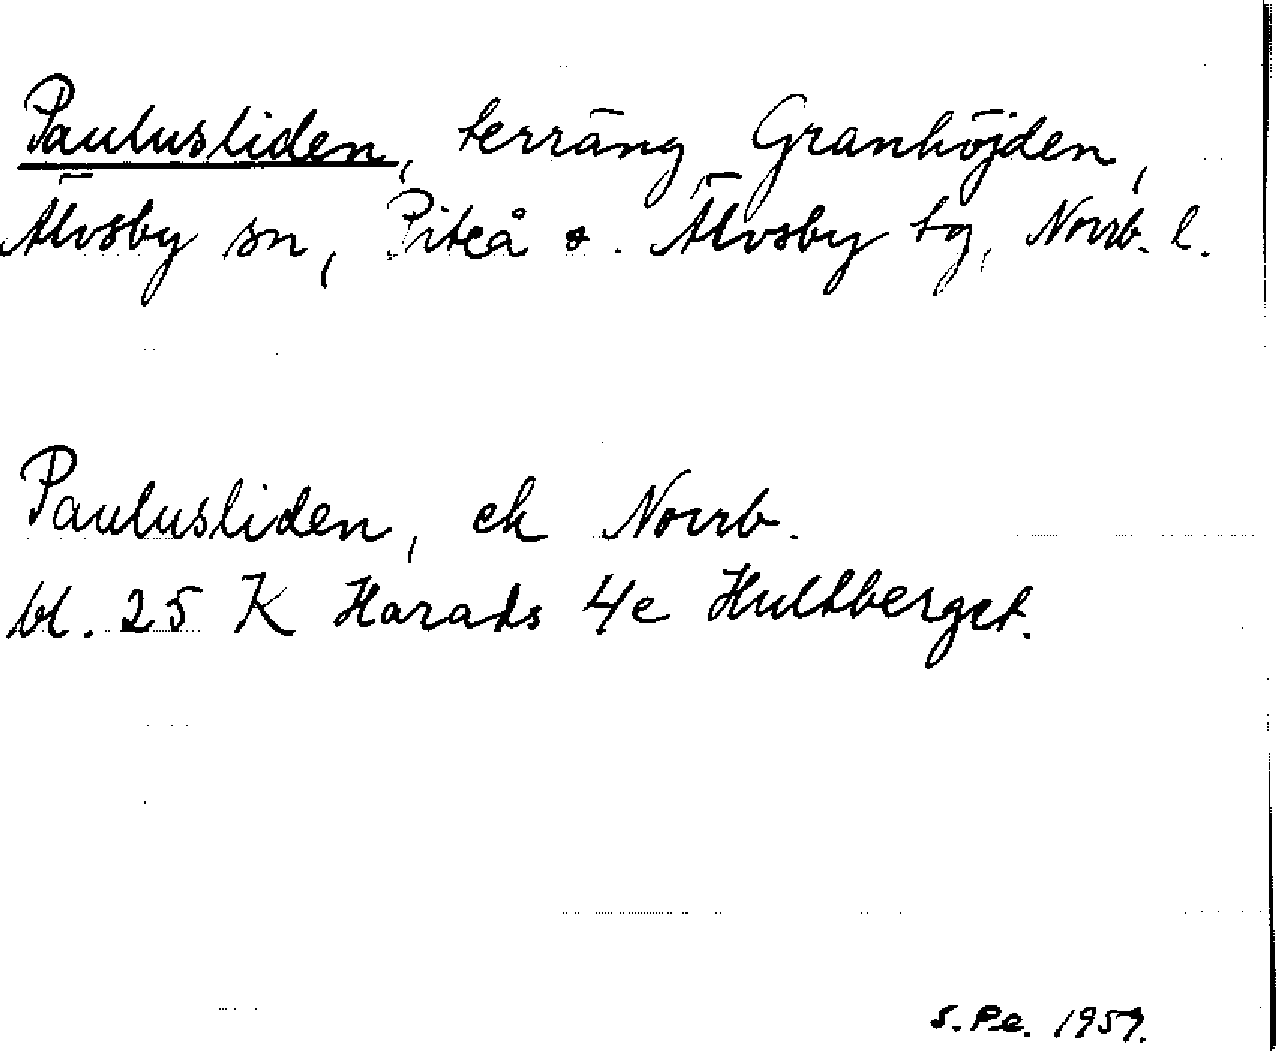 Paulusliden, terräng Granhöjden,
Älvsby sn, Piteå o. Älvsby tg, Norrb. l.
Paulusliden, ek Norrb.
bl. 25 K Harads 4e Hultberget.
S.Pe. 1957.